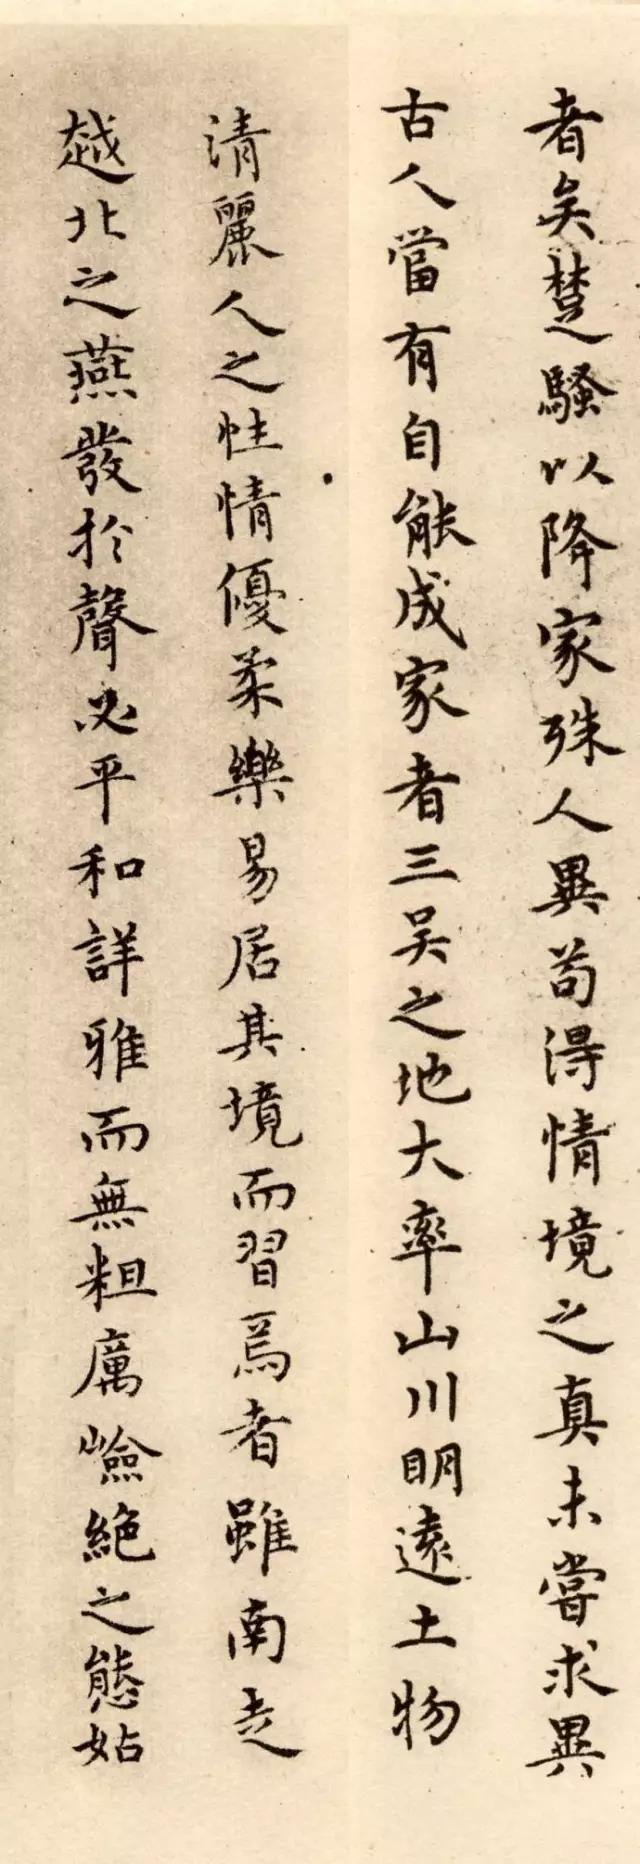 者矣楚騷以降家殊人異苟得情境之真未嘗求異
古人當有自能成家者三吳之地大率山川明遠土物
清麗人之性情優柔樂易居其境而習焉者雖南走
越北之燕發於聲必平和詳雅而無粗厲嶮絕之態姑